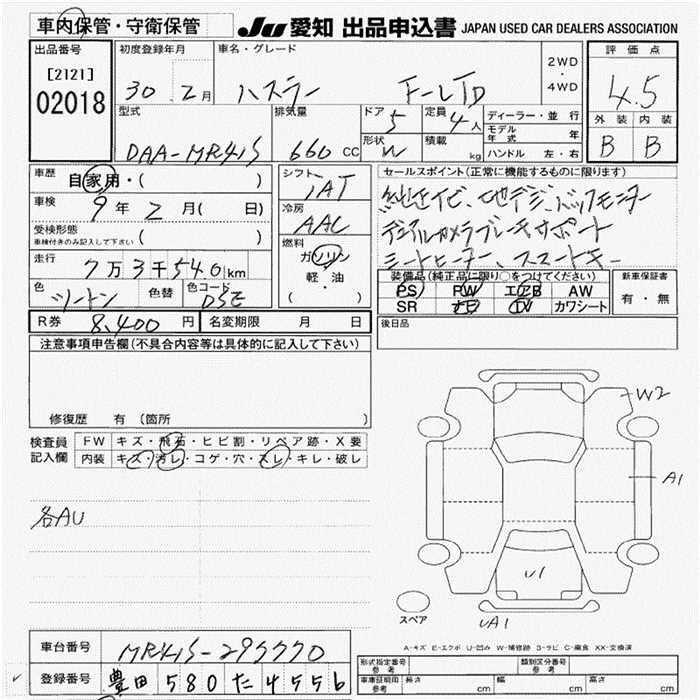 車内保管・守衛保管
JU 愛知 出品申込書 JAPAN USED CAR DEALERS ASSOCIATION
出品番号 初度登録年月 車名・グレード 2WD・4WD 評価点
[2121]
02018
30年 2月 ハスラー F-LTD 4.5
型式 排気量 ドア 定員 ディーラー・並行 外装 内装
DAA-MR41S 660 CC 5 4人 モデル年式 年 B B
形状 積載 kg ハンドル 左・右
W
車歴 自家用・( ) シフト IAT セールスポイント(正常に機能するものに限ります)
車検 9年 2月( 日) 冷房 AAC 純正ナビ、地デジ、バックモニター
受検形態 車検付きのみ記入して下さい ( ) 燃料 デュアルカメラブレーキサポート
走行 7万3千540km ガソリン 軽・油 ( ) シートヒーター、スマートキー
色 ツートン 色替 色コード DSE
装備品(純正品に限り○をつけてください) 新車保証書
PS PW エアB AW 有・無
SR ナビ TV カワシート
R券 8,400円 名変期限 月 日 後日品
注意事項申告欄(不具合内容等は具体的に記入して下さい)
修復歴 有(箇所
検査員記入欄 FW キズ・飛石・ヒビ割・リペア跡・X要
内装 キズ・汚レ・コゲ・穴・スレ・キレ・破レ
各AU
W2
A1
U1
UA1
スペア
A-キズ E-エクボ U-凹み W-補修跡 B-サビ C-腐食 XX-交換済
車台番号 MR41S-295770
登録番号 豊田 580 た 4556
形式指定番号 参考 類別区分番号 参考
車庫証明用 参考 長さ cm 幅 cm 高さ cm